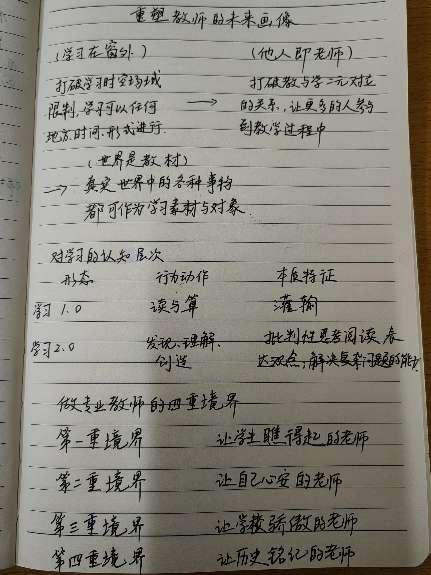 重塑教师的未来画像
(学习在窗外) (他人即老师)
打破学习时空场域 打破教与学二元对立
限制,学习可以任何 → 的关系,让更多的人参与
地方时间形式进行. 到教学过程中
(世界是教材)
→ 真实世界中的各种事物
都可作为学习素材与对象.
对学习的认知层次
形态 行为动作 本质特征
学习1.0 读与算 灌输
学习2.0 发现、理解、 批判性思考阅读、表
创造 达观点,解决复杂问题的能力
做专业教师的四重境界
第一重境界 让学生瞧得起的老师
第二重境界 让自己心安的老师
第三重境界 让学校骄傲的老师
第四重境界 让历史铭记的老师